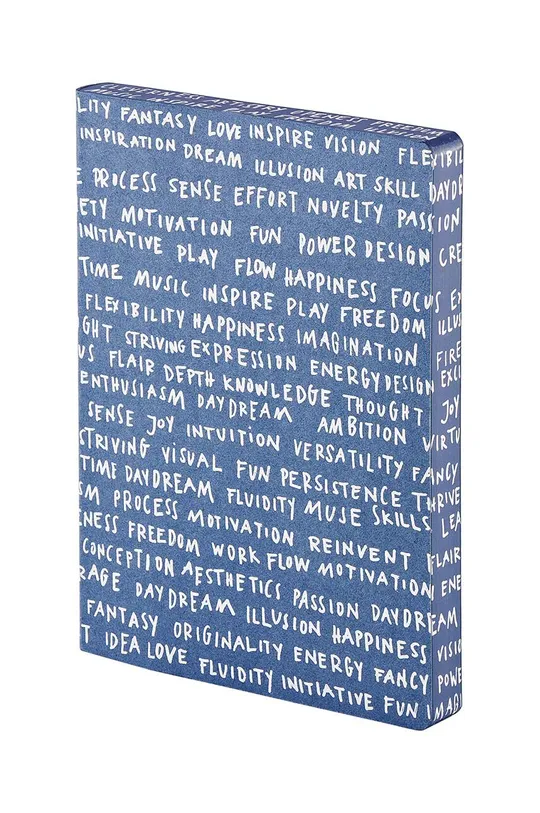 ARTISTRY FREEDOM
MUSIC INSPIRE PLAY FREEDOM ILLUSION
LITY FANTASY LOVE INSPIRE VISION FLEXIBIL
INSPIRATION DREAM ILLUSION ART SKILL DAYDRE
E PROCESS SENSE EFFORT NOVELTY PASSION
ETY MOTIVATION FUN POWER DESIGN CRE
INITIATIVE PLAY FLOW HAPPINESS FOCUS EX
TIME MUSIC INSPIRE PLAY FREEDOM ILLUS
FLEXIBILITY HAPPINESS IMAGINATION FIRE
GHT STRIVING EXPRESSION ENERGY DESIGN EXCI
US FLAIR DEPTH KNOWLEDGE THOUGHT JOY
ENTHUSIASM DAYDREAM AMBITION VIRTU
SENSE JOY INTUITION VERSATILITY FANCY
STRIVING VISUAL FUN PERSISTENCE THRIVE
TIME DAYDREAM FLUIDITY MUSE SKILLS LEA
SM PROCESS MOTIVATION REINVENT FLAIR
NESS FREEDOM WORK FLOW MOTIVATION ENE
CONCEPTION AESTHETICS PASSION DAYDREAM
RAGE DAYDREAM ILLUSION HAPPINESS VISIO
FANTASY ORIGINALITY ENERGY FANCY POWE
T IDEA LOVE FLUIDITY INITIATIVE FUN IMAGI